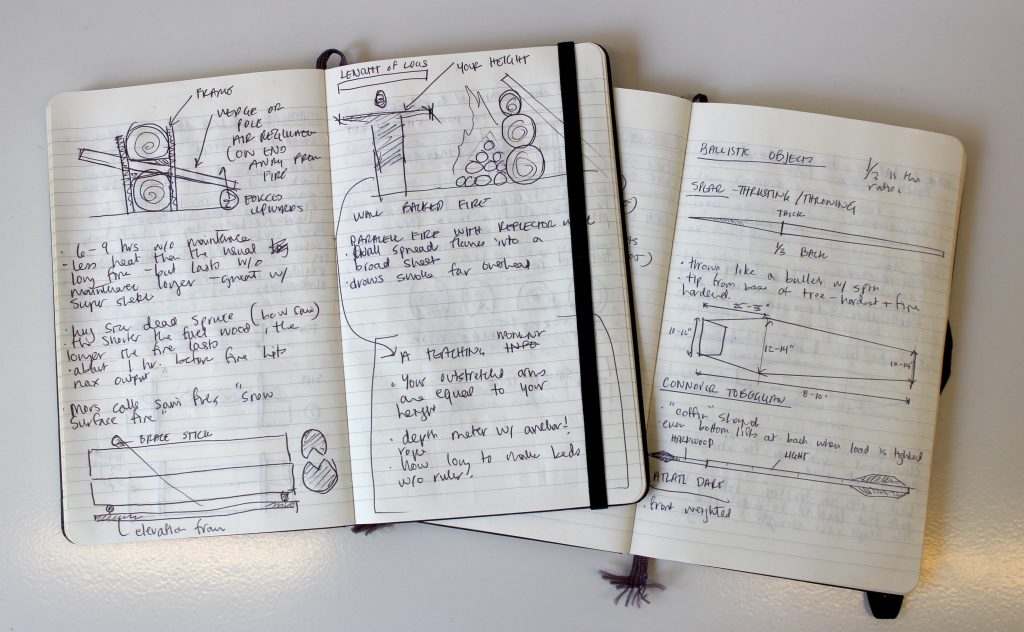 FRAME
WEDGE OR
POLE
AIR REGULATED
(ON END
AWAY FROM
FIRE
FORCED
UPWARDS
· 6-9 hrs w/o maintence
· Less heat than the usual
long fire - but lasts w/o
maintenance longer - great w/
super shelter
dead spruce (bow saw)
· the shorter the fuel wood, the
longer the fire lasts
· about 1 hr. before fire hits
max output.
· Mors calls Sami fires, "snow
surface fire"
BRACE STICK
elevation from
LENGHT OF LOGS
YOUR HEIGHT
WALL BACKED FIRE
PARALLEL FIRE WITH REFLECTOR
· Wall spread flames into a
broad sheet
· draws smoke far overhead
A TEACHING MOMENT
INFO
· Your outstretched arms
are equal to your
height
· depth meter w/ anchor!
rope
· how long to make beds
w/o ruler!
BALLISTIC OBJECTS
1/3 is the
ratio.
SPEAR - THRUSTING/THROWING
THICK
1/3 BACK
· thrown like a bullet w/ spin
· tip from base of tree - hardest + fire
hardened.
10-12"
12-14"
10-14"
8-10'
CONNOVER TOBOGGAN
· "coffin" shaped
· even bottom lifts at back when load is tightened
HARDWOOD
LIGHT
ATLATL DART
· front weighted